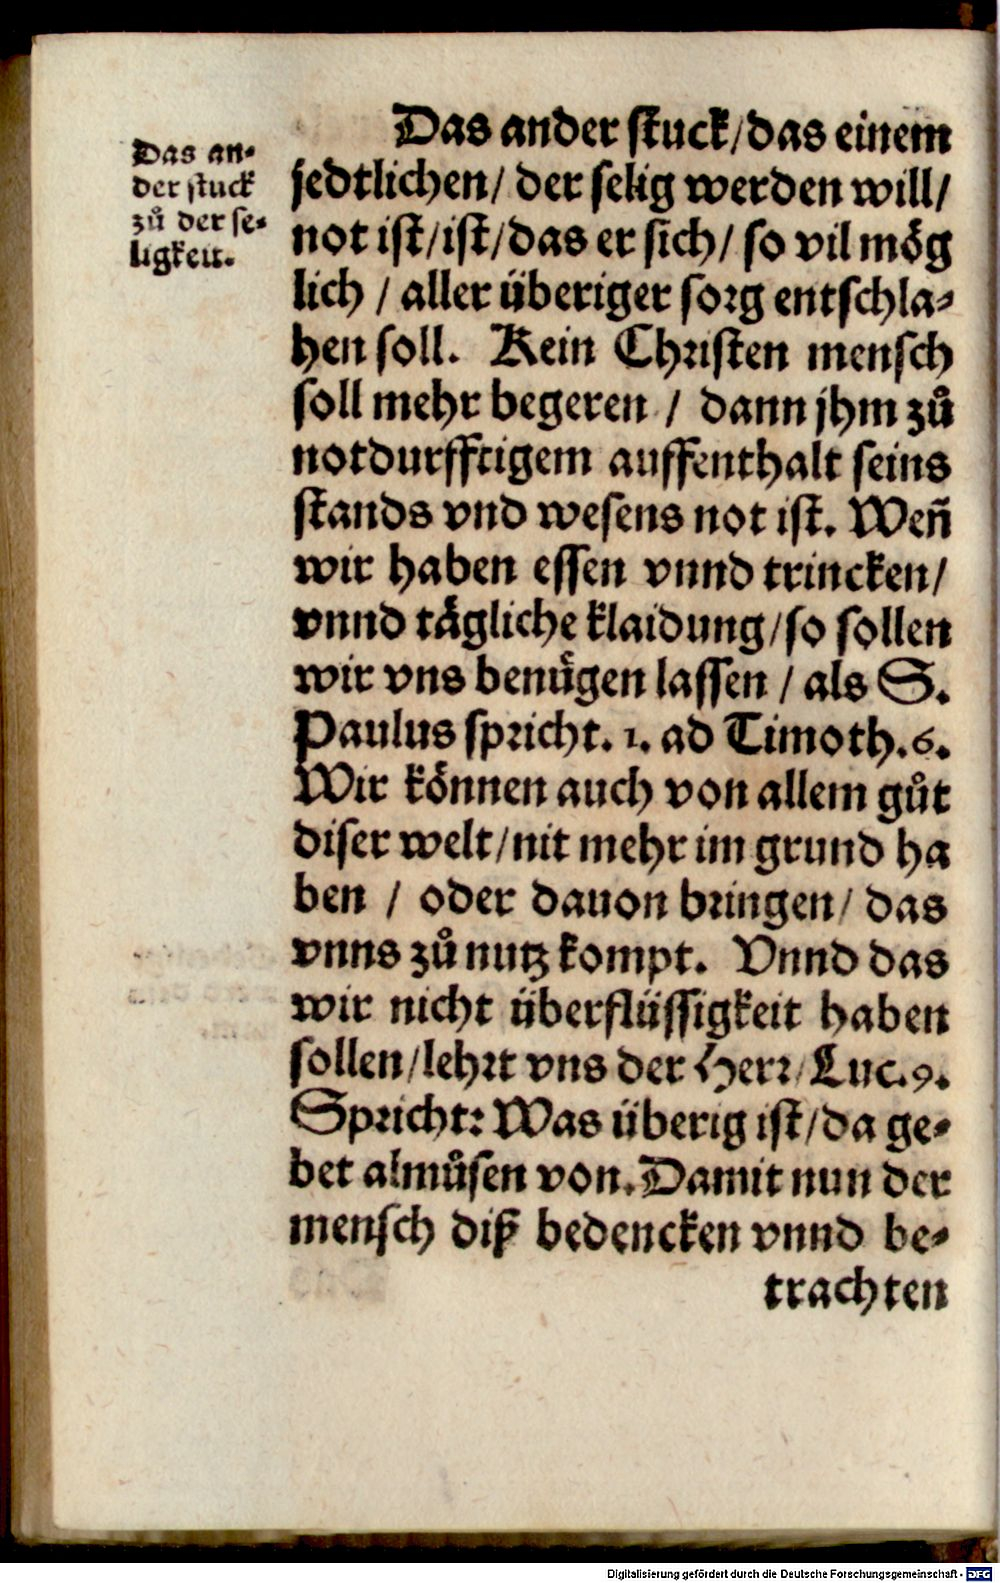 Das an⸗
der stuck
zů der se⸗
ligkeit.
Das ander stuck/das einem
jedtlichen/ der selig werden will/
not ist/ist/das er sich/ so vil mög
lich / aller überiger sorg entschla⸗
hen soll. Kein Christen mensch
soll mehr begeren / dann jhm zů
notdurfftigem auffenthalt seins
stands vnd wesens not ist. Weñ
wir haben essen vnnd trincken/
vnnd tägliche klaidung/so sollen
wir vns benügen lassen / als S.
Paulus spricht. 1. ad Timoth. 6.
Wir können auch von allem gůt
diser welt/nit mehr im grund ha
ben / oder dauon bringen/ das
vnns zů nutz kompt. Vnnd das
wir nicht überflüssigkeit haben
sollen/lehrt vns der Herr/Luc. 9.
Spricht: Was überig ist/da ge⸗
bet almůsen von. Damit nun der
mensch diß bedencken vnnd be⸗
trachten
Digitalisierung gefördert durch die Deutsche Forschungsgemeinschaft - DFG